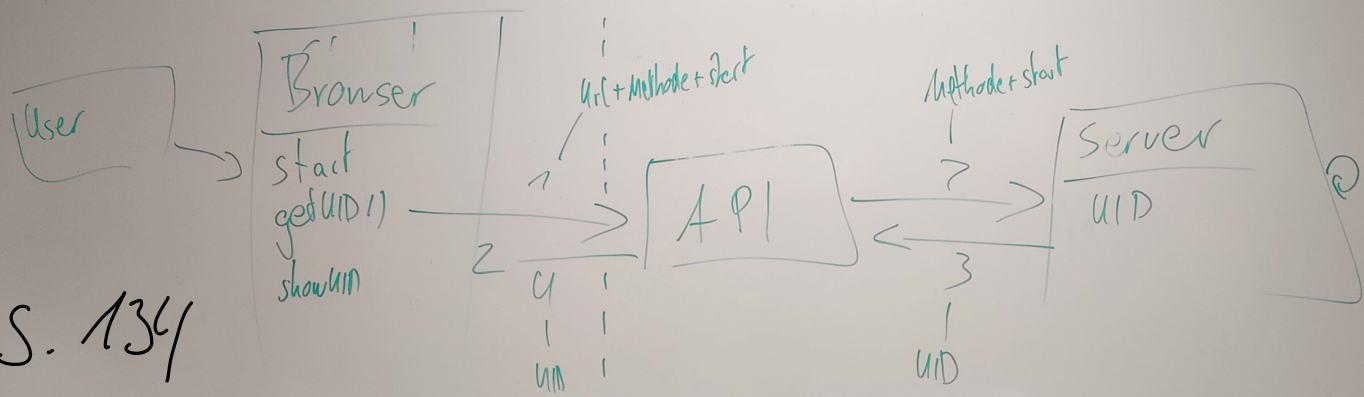 User
Browser
start
getUID()
showUID
url+Methode+start
1
2
4
UID
API
Methode+start
2
3
UID
Server
UID
S. 134